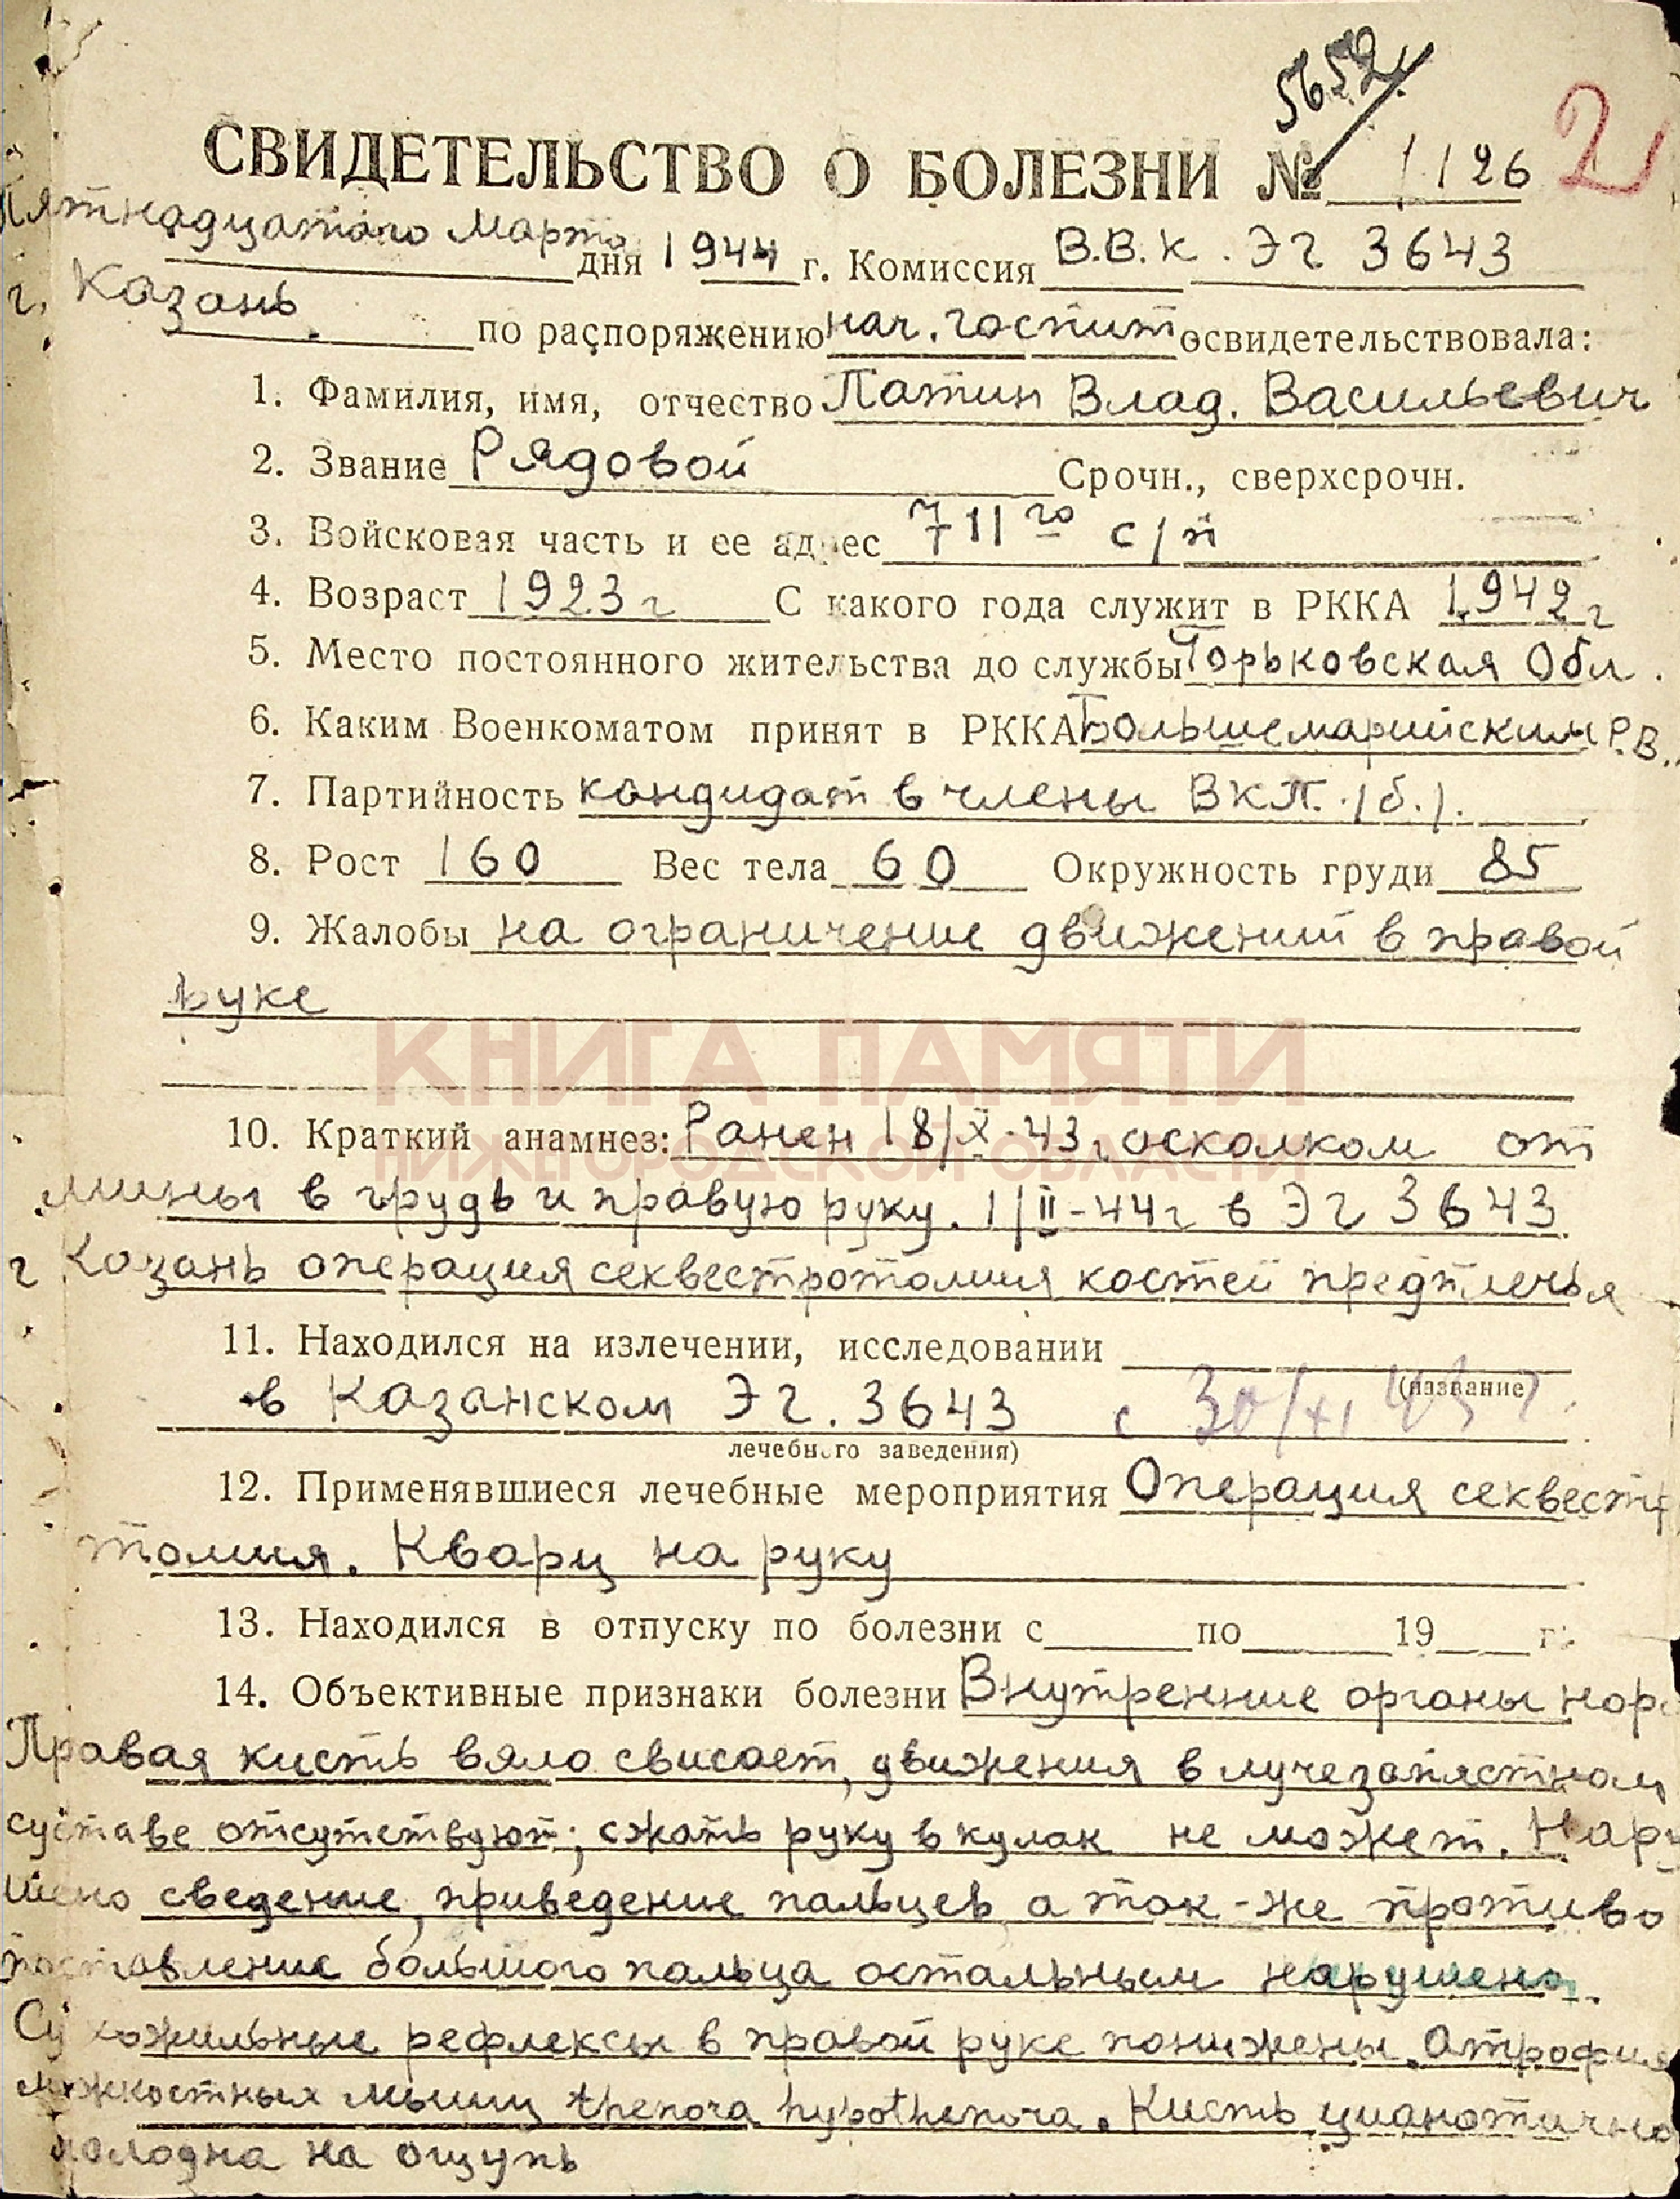 5652
2
СВИДЕТЕЛЬСТВО О БОЛЕЗНИ № 1126
Пятнадцатого Марта дня 1944 г. Комиссия В.В.К. ЭГ 3643
г. Казань. по распоряжению нач. госпит освидетельствовала:
1. Фамилия, имя, отчество Латин Влад. Васильевич
2. Звание Рядовой Срочн., сверхсрочн.
3. Войсковая часть и ее адрес 711го с/п
4. Возраст 1923 г С какого года служит в РККА 1942 г
5. Место постоянного жительства до службы Горьковская Обл.
6. Каким Военкоматом принят в РККА Большемарийским Р.В..
7. Партийность кандидат в члены ВКП./б./.
8. Рост 160 Вес тела 60 Окружность груди 85
9. Жалобы на ограничение движений в правой
руке
КНИГА ПАМЯТИ
НИЖЕГОРОДСКОЙ ОБЛАСТИ
10. Краткий анамнез: Ранен 18/X-43г осколком от
мины в грудь и правую руку. 1/II-44г в ЭГ 3643
г Казань операция секвестротомия костей предплечья
11. Находился на излечении, исследовании
(название
в Казанском ЭГ. 3643 с 30/XI 43 г
лечебного заведения)
12. Применявшиеся лечебные мероприятия Операция секвестр
томия. Кварц на руку
13. Находился в отпуску по болезни с по 19 г.
14. Объективные признаки болезни Внутренние органы нор
Правая кисть вяло свисает, движения в лучезапястном
суставе отсутствуют; сжать руку в кулак не может. Нару
шено сведение, приведение пальцев, а так-же противо
поставление большого пальца остальным нарушено.
Сухожильные рефлексы в правой руке понижены. Атрофия
межкостных мышц thenora hypothenora. Кисть цианотична
холодна на ощупь